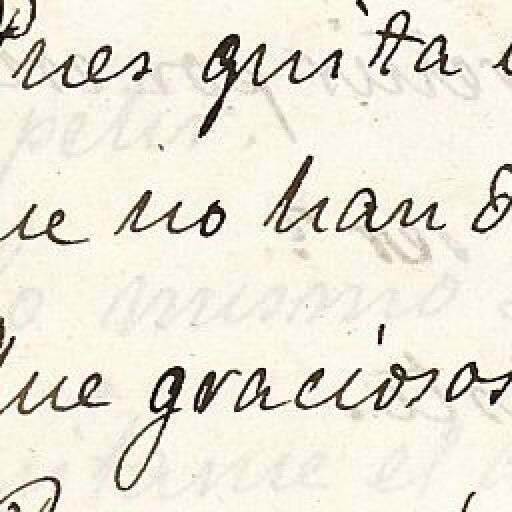 Pues quita
que no han
Que graciosos